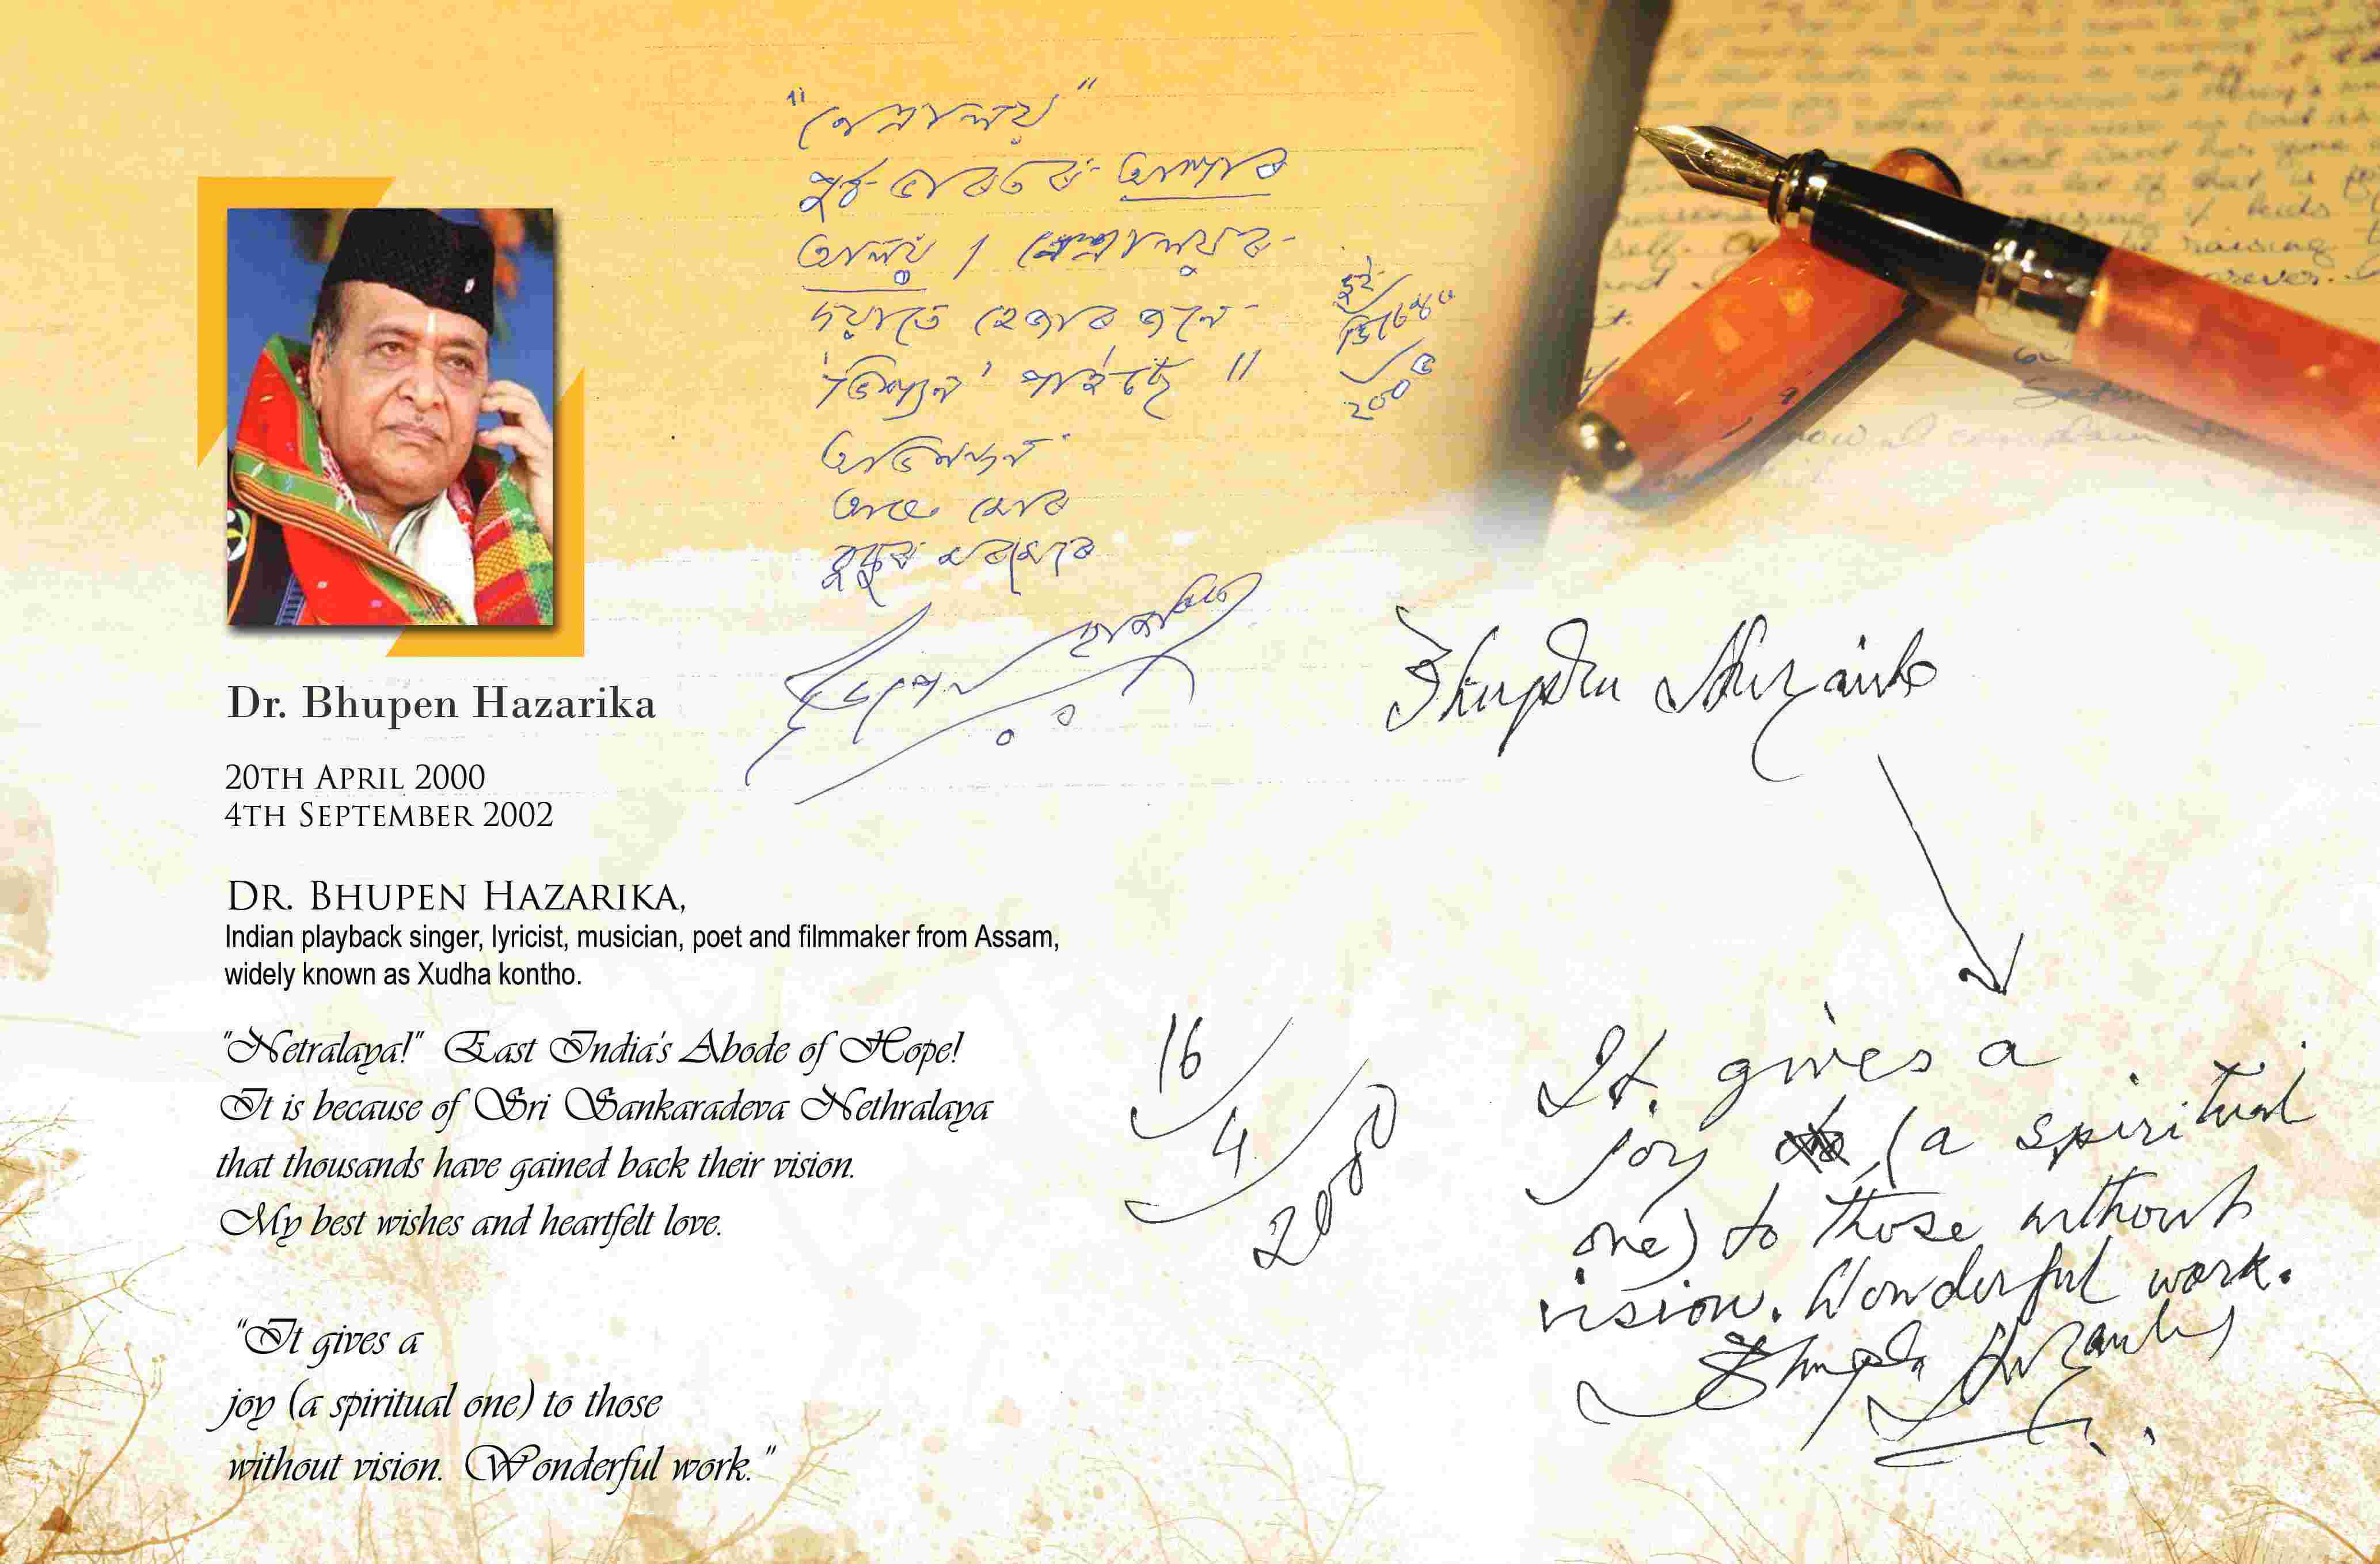 "নেত্ৰালয়"
পূৰ্ব ভাৰতৰ আশাৰ
আলয়। নেত্ৰালয়ৰ
দয়াতে হেজাৰ জনে
পাইছে॥
অভিনন্দন
মোৰ
ভূপেন হাজৰিকা
Dr. Bhupen Hazarika
20TH APRIL 2000
4TH SEPTEMBER 2002
DR. BHUPEN HAZARIKA,
Indian playback singer, lyricist, musician, poet and filmmaker from Assam,
widely known as Xudha kontho.
"Netralaya!" East India's Abode of Hope!
It is because of Sri Sankaradeva Nethralaya
that thousands have gained back their vision.
My best wishes and heartfelt love.
"It gives a
joy (a spiritual one) to those
without vision. Wonderful work."
Bhupen Hazarika
16/4/2000
It gives a
joy (a spiritual
one) to those without
vision. Wonderful work.
Bhupen Hazarika